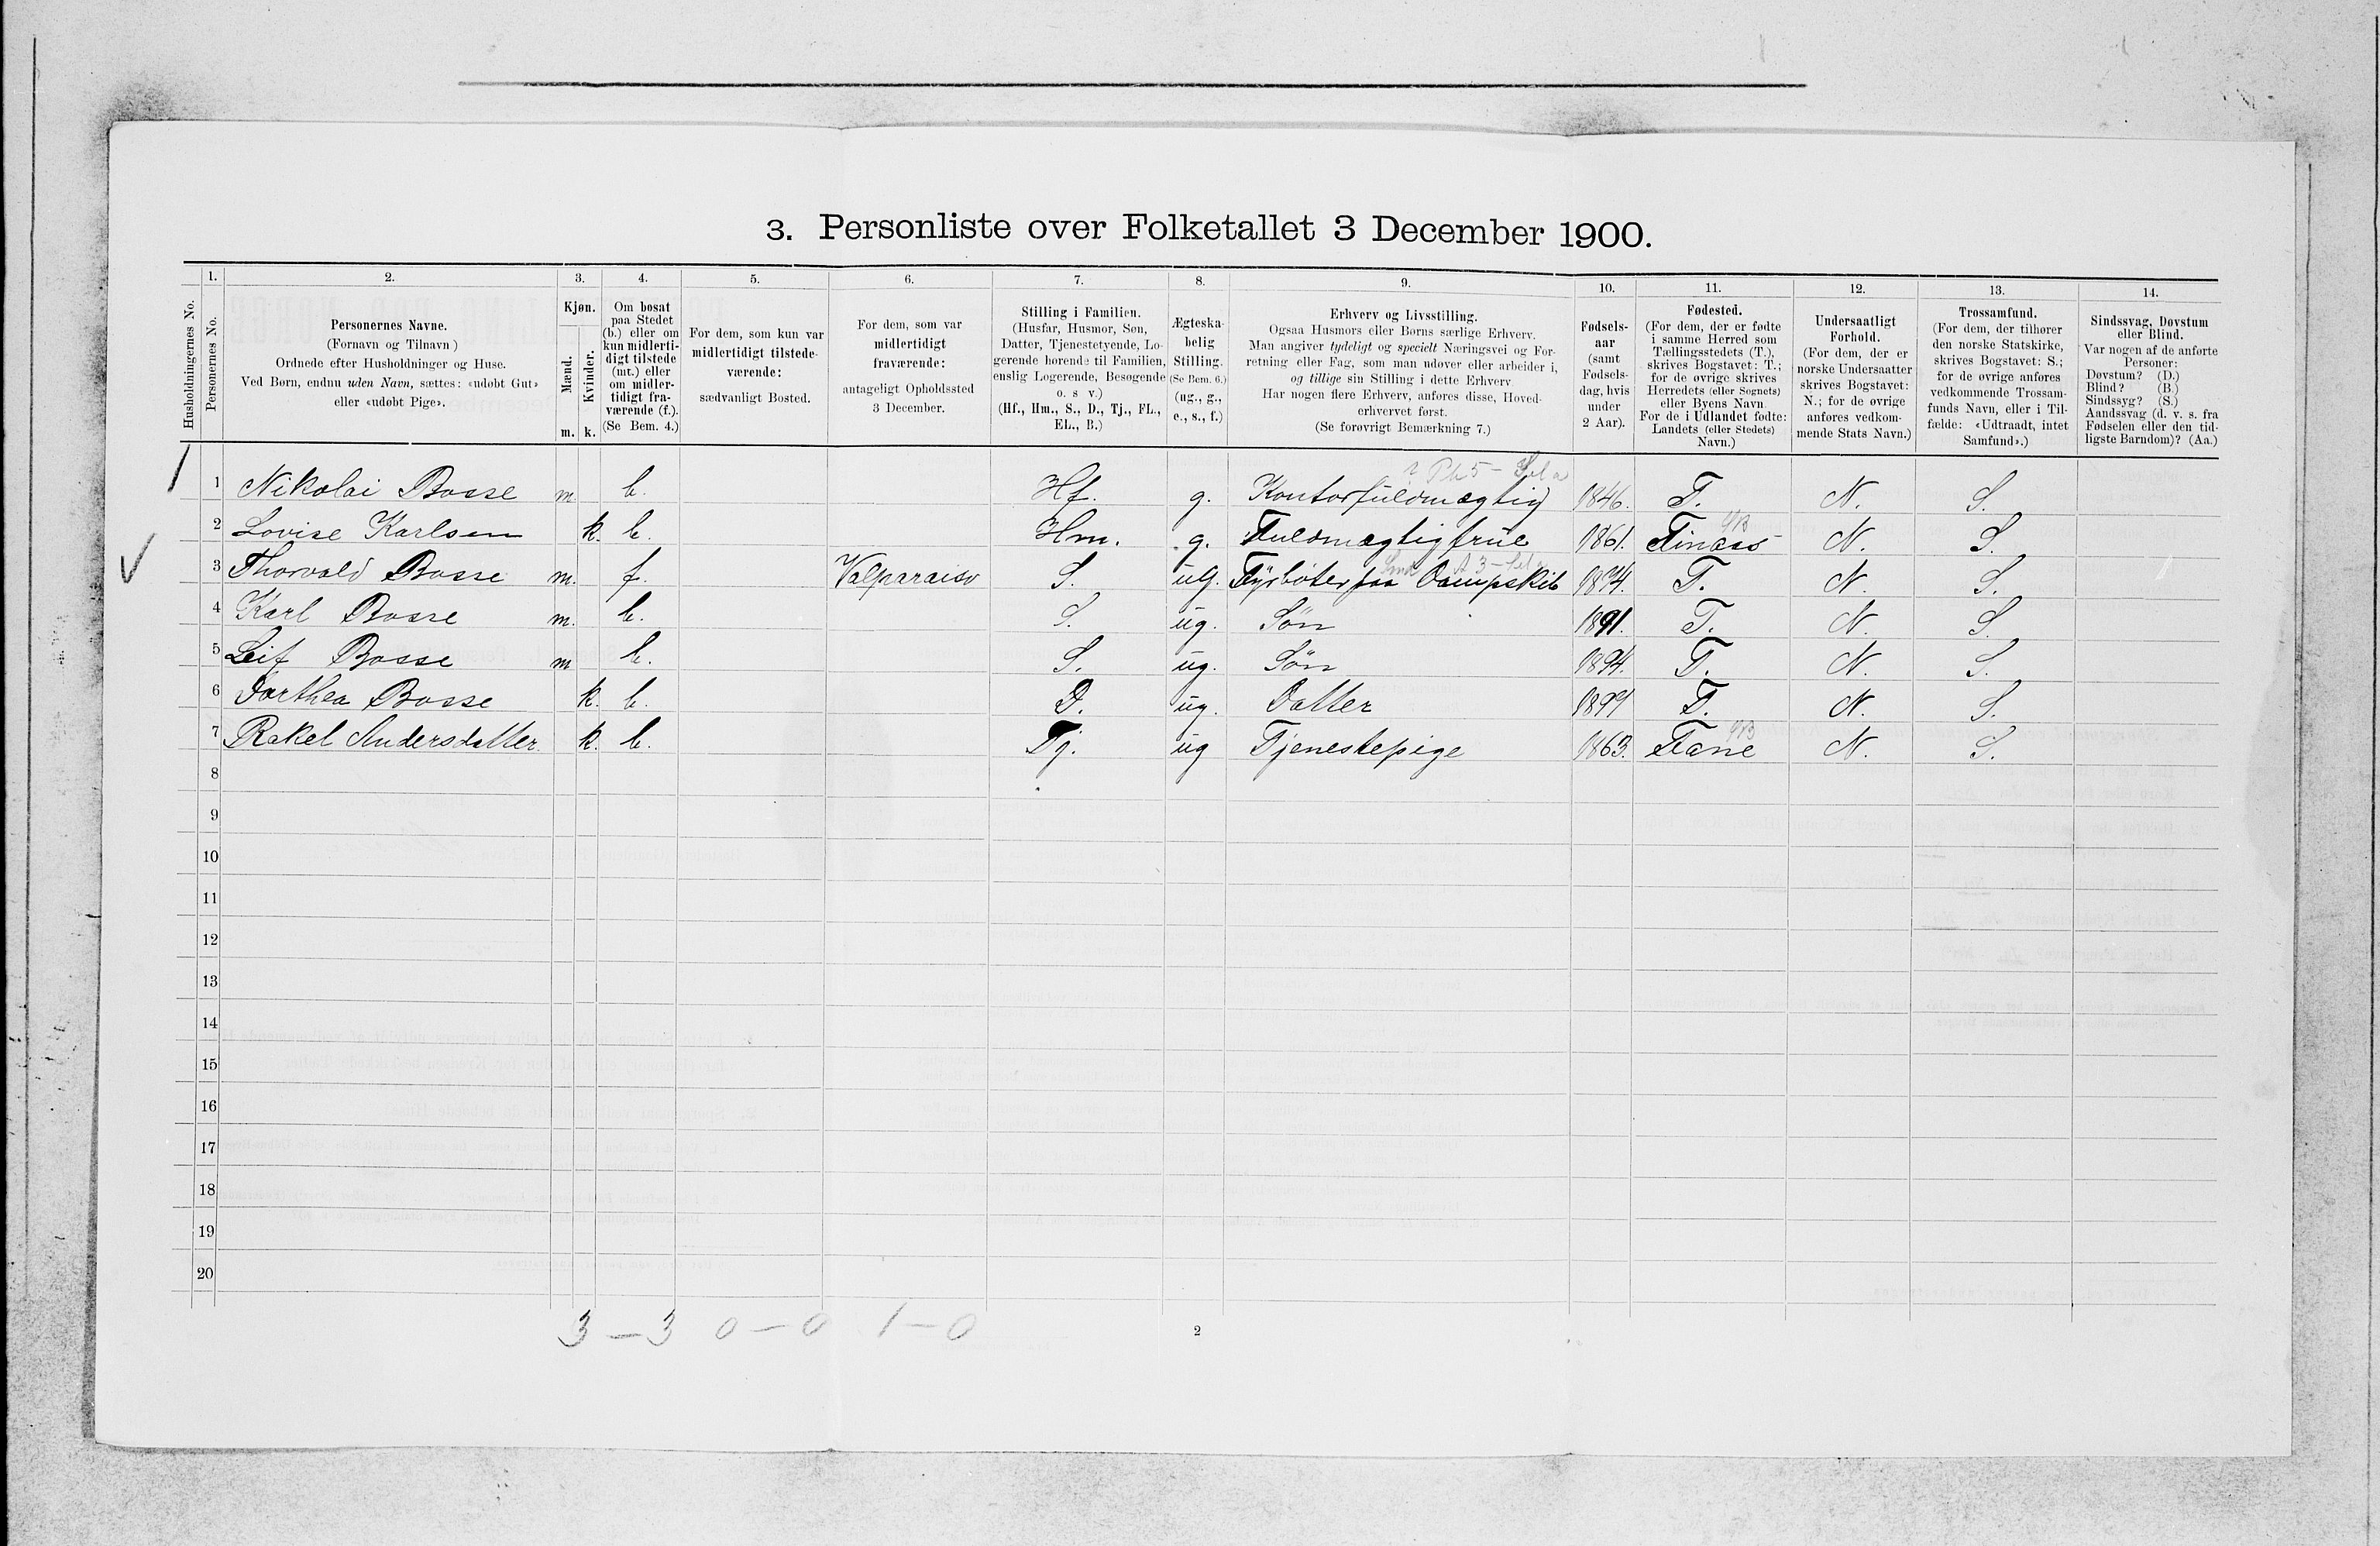 3. Personliste over Folketallet 3 December 1900.
1. 2. 3. 4. 5. 6. 7. 8. 9. 10. 11. 12. 13. 14.
Husholdningernes No.
Personernes No.
Personernes Navne.
(Fornavn og Tilnavn)
Ordnede efter Husholdninger og Huse.
Ved Børn, endnu uden Navn, sættes: «udøbt Gut»
eller «udøbt Pige».
Kjøn.
Mænd.
Kvinder.
m. k.
Om bosat
paa Stedet
(b.) eller om
kun midlerti-
digt tilstede
(mt.) eller
om midler-
tidigt fra-
værende (f.).
(Se Bem. 4.)
For dem, som kun var
midlertidigt tilstede-
værende:
sædvanligt Bosted.
For dem, som var
midlertidigt
fraværende:
antageligt Opholdssted
3 December.
Stilling i Familien.
(Husfar, Husmor, Søn,
Datter, Tjenestetyende, Lo-
gerende hørende til Familien,
enslig Logerende, Besøgende
o. s v.)
(Hf., Hm., S., D., Tj., FL.,
EL., B.)
Ægteska-
belig
Stilling.
(Se Bem. 6.)
(ug., g.,
e., s., f.)
Erhverv og Livsstilling.
Ogsaa Husmors eller Børns særlige Erhverv.
Man angiver tydeligt og specielt Næringsvei og For-
retning eller Fag, som man udøver eller arbeider i,
og tillige sin Stilling i dette Erhverv.
Har nogen flere Erhverv, anføres disse, Hoved-
erhvervet først.
(Se forøvrigt Bemærkning 7.)
Fødsels-
aar
(samt
Fødsels-
dag, hvis
under
2 Aar).
Fødested.
(For dem, der er fødte
i samme Herred som
Tællingsstedets (T.),
skrives Bogstavet: T.;
for de øvrige skrives
Herredets (eller Sognets)
eller Byens Navn.
For de i Udlandet fødte:
Landets (eller Stedets)
Navn.)
Undersaatligt
Forhold.
(For dem, der er
norske Undersaatter
skrives Bogstavet:
N.; for de øvrige
anføres vedkom-
mende Stats Navn.)
Trossamfund.
(For dem, der tilhører
den norske Statskirke,
skrives Bogstavet: S.;
for de øvrige anføres
vedkommende Trossam-
funds Navn, eller i Til-
fælde: «Udtraadt, intet
Samfund».)
Sindssvag, Døvstum
eller Blind.
Var nogen af de anførte
Personer:
Døvstum? (D.)
Blind? (B.)
Sindssyg? (S.)
Aandssvag (d. v. s. fra
Fødselen eller den tid-
ligste Barndom)? (Aa.)
1 Nikolai Bosse m. b. Hf. g. Kontorfuldmægtig 1846. T. N. S.
2 Lovise Karlsen k. b. Hm. g. Fuldmægtigfrue 1861. Finaas N. S.
3 Thorvald Bosse m. f. Valparaiso S. ug. Fyrbøter paa Dampskib T. N. S.
4 Karl Bosse m. b. S. ug. Søn 1891. T. N. S.
5 Leif Bosse m b. S. ug. Søn 1894. T. N. S.
6 Dorthea Bosse k. b. D. ug. Datter T. N. S.
7 Rakel Andersdatter k. b. Tj. ug Tjenestepige 1863. Fane N. S.
8
9
10
11
12
13
14
15
16
17
18
19
20
3 – 3 0 – 0 1 – 0
2